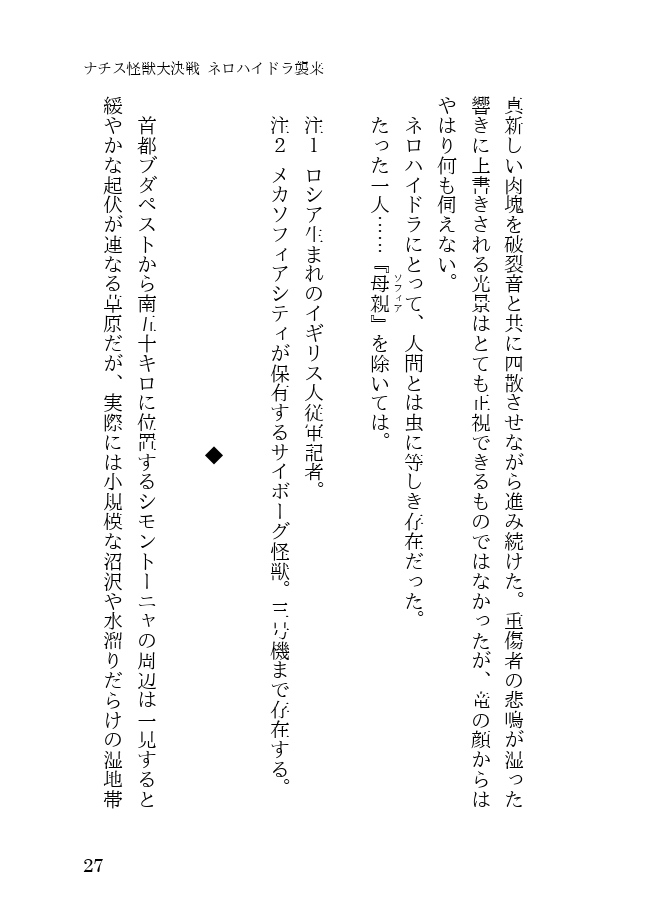 ナチス怪獣大決戦 ネロハイドラ襲来
真新しい肉塊を破裂音と共に四散させながら進み続けた。重傷者の悲鳴が湿った
響きに上書きされる光景はとても正視できるものではなかったが、竜の顔からは
やはり何も伺えない。
ネロハイドラにとって、人間とは虫に等しき存在だった。
たった一人……『母親』を除いては。
ソフィア
注１ ロシア生まれのイギリス人従軍記者。
注２ メカソフィアシティが保有するサイボーグ怪獣。三号機まで存在する。
◆
首都ブダペストから南五十キロに位置するシモントーニャの周辺は一見すると
緩やかな起伏が連なる草原だが、実際には小規模な沼沢や水溜りだらけの湿地帯
27